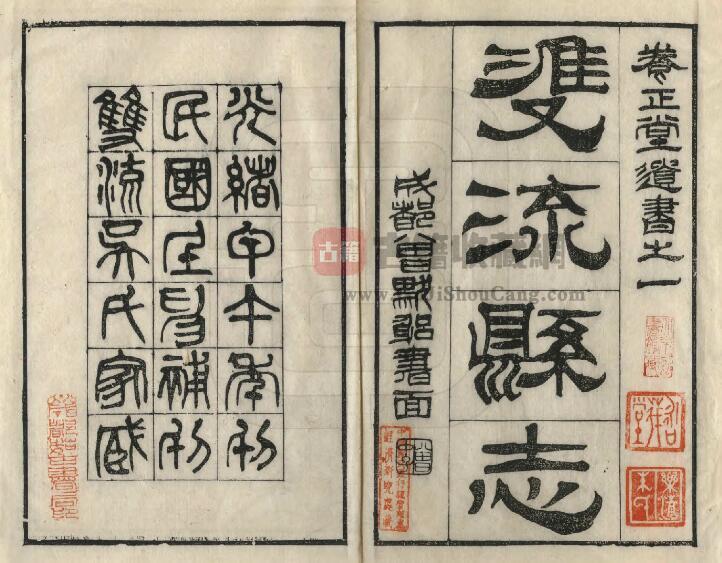 養正堂遺書之一
雙流縣志
成都曾默躬書面
光緒甲午年刊
民國壬申補刊
雙流吳氏家藏
古籍
古籍收藏網
www.GuJiShouCang.com